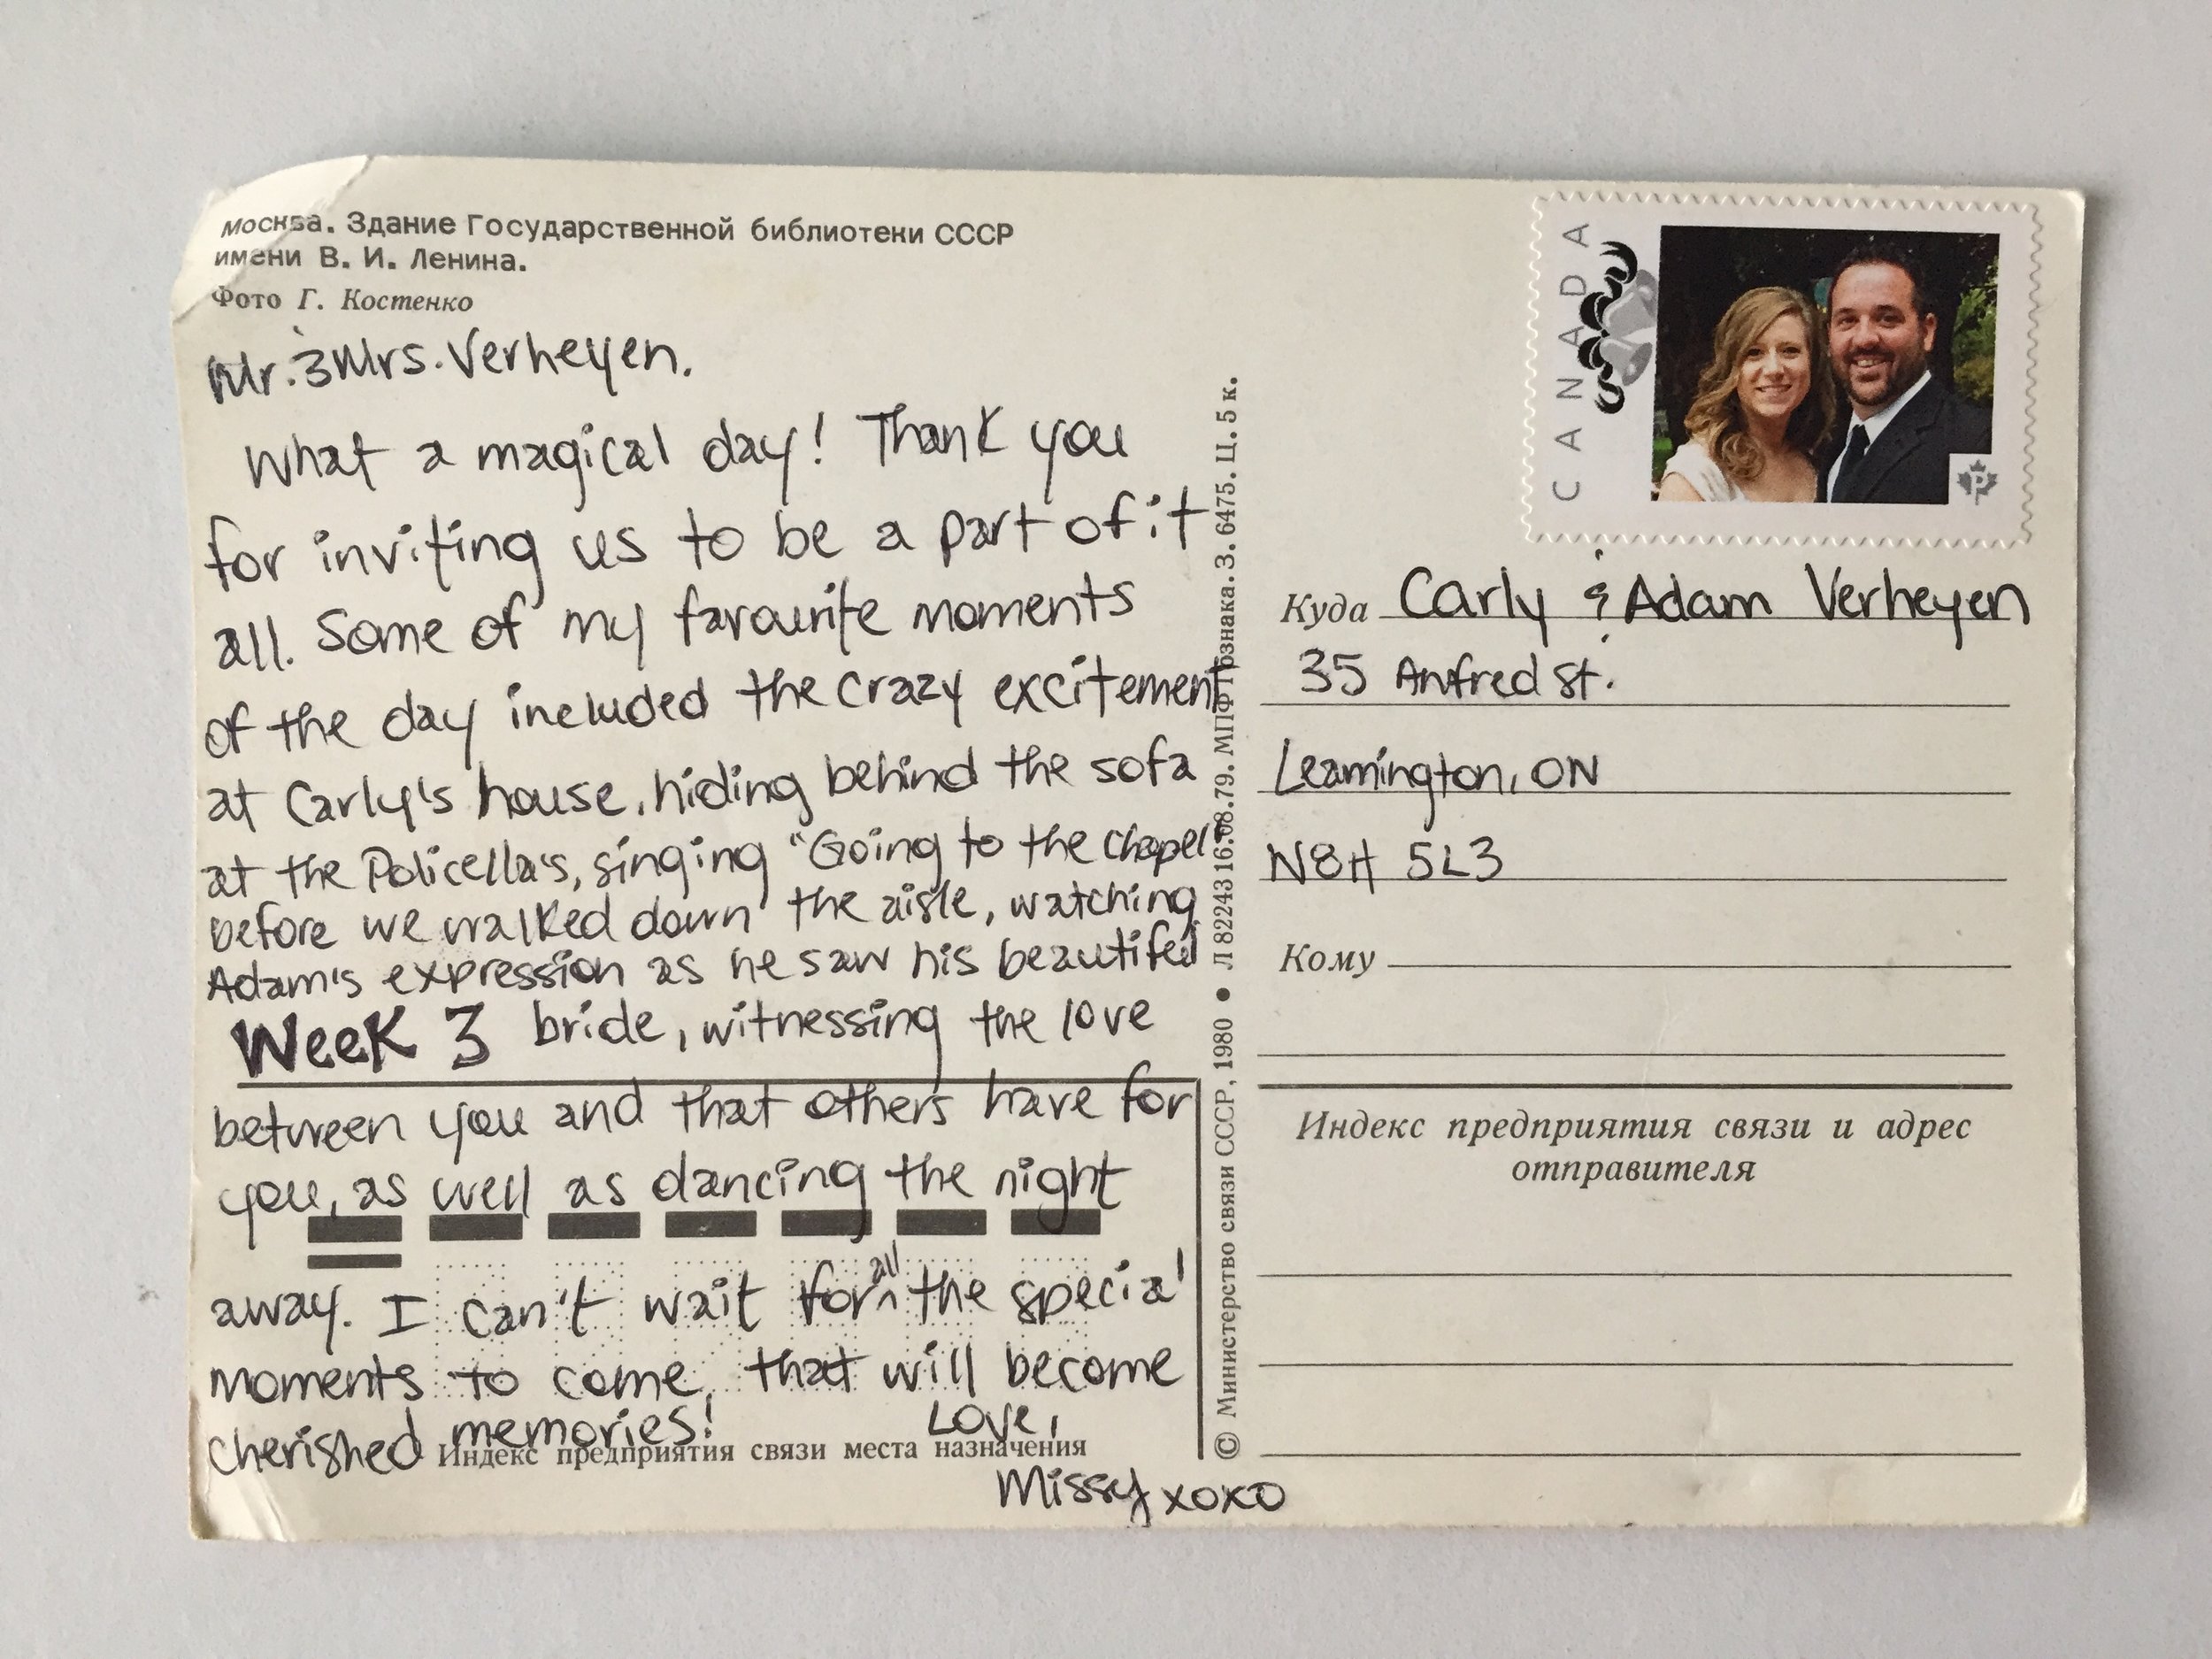 Москва. Здание Государственной библиотеки СССР
имени В. И. Ленина.
Фото Г. Костенко
Mr. & Mrs. Verheyen.
What a magical day! Thank you
for inviting us to be a part of it
all. Some of my favourite moments
of the day included the crazy excitement
at Carly's house, hiding behind the sofa
at the Policella's, singing "Going to the chapel"
before we walked down the aisle, watching
Adam's expression as he saw his beautiful
Week 3 bride, witnessing the love
between you and that others have for
you, as well as dancing the night
away. I can't wait for all the special
moments to come, that will become
cherished memories! Love,
Индекс предприятия связи места назначения
Missy xoxo
© Министерство связи СССР, 1980 • Л 82243 16.08.79. МПФ Гознака. З. 6475. Ц. 5 к.
CANADA
P
Куда Carly & Adam Verheyen
35 Anfred St.
Leamington, ON
N8H 5L3
Кому
Индекс предприятия связи и адрес
отправителя